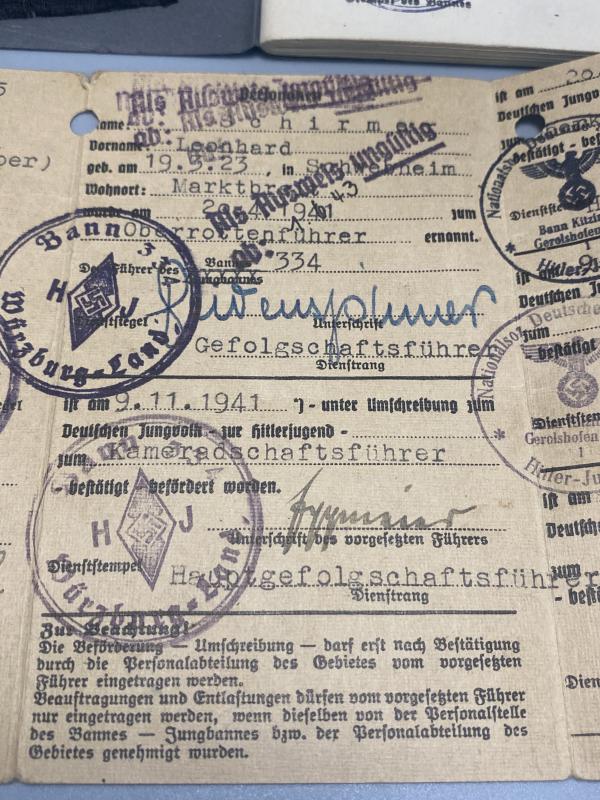 Stempel des Bannes
5
ber)
Als Ausweis ungültig
ab:
Personalien
Name: Schirmer
Vorname: Leonhard
geb. am 19.5.23, in Schwebheim
Wohnort: Marktbreit
wurde am 20.4.1941 zum
Oberrottenführer ernannt.
Als Ausweis ungültig
ab: 43
Der Führer des Bannes 334
Jungbannes
Bann 334
H J
Würzburg-Land.
Dienstsiegel
Unterschrift
Gefolgschaftsführer
Dienstrang
ist am 9.11.1941 *) - unter Umschreibung zum
Deutschen Jungvolk - zur Hitlerjugend -
zum Kameradschaftsführer
- bestätigt - befördert worden.
Bann 334
H J
Würzburg-Land.
Unterschrift des vorgesetzten Führers
Dienststempel
Hauptgefolgschaftsführer
Dienstrang
Zur Beachtung!
Die Beförderung — Umschreibung — darf erst nach Bestätigung
durch die Personalabteilung des Gebietes vom vorgesetzten
Führer eingetragen werden.
Beauftragungen und Entlastungen dürfen vom vorgesetzten Führer
nur eingetragen werden, wenn dieselben von der Personalstelle
des Bannes — Jungbannes bzw. der Personalabteilung des
Gebietes genehmigt wurden.
ist am 20.
Deutschen Jungv
zum
- bestätigt - bef
Dienstste
Bann Kitzin
Gerolzhofen
Hitler-J
ist am
Deutschen
zum
- bestätigt
Nationalsoz. Deutsche
Dienststem
Gerolzhofen
Hitler-Ju
ist am
Deutsche
zum
- bestä
Dien